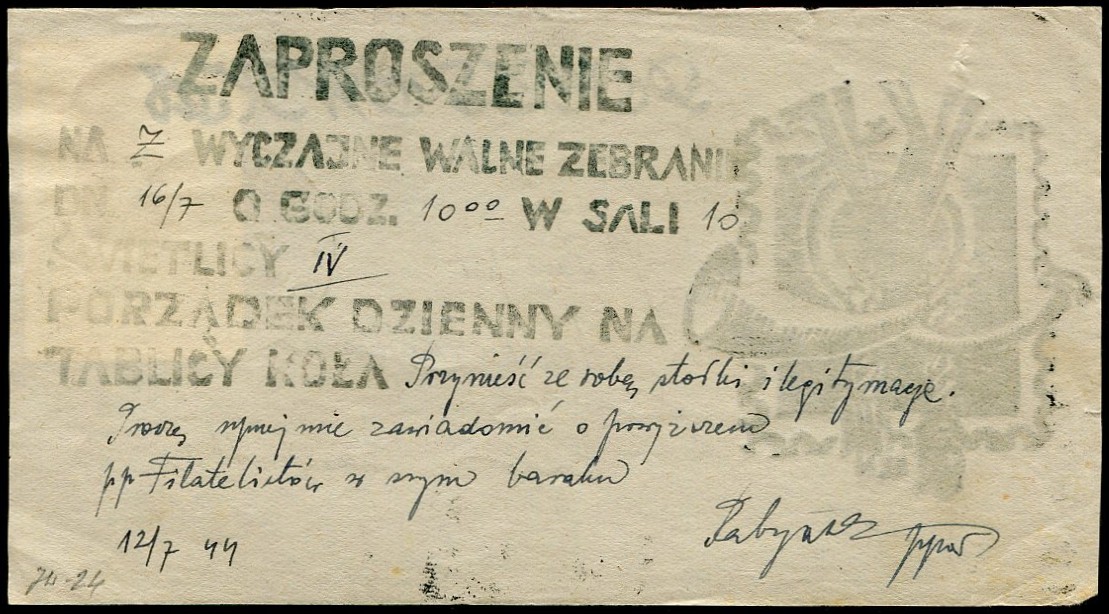 ZAPROSZENIE
NA Z WYCZAJNE WALNE ZEBRANIE
DN. 16/7 O GODZ. 10⁰⁰ W SALI 10
ŚWIETLICY IV
PORZĄDEK DZIENNY NA
TABLICY KOŁA Przynieść ze sobą stołki i legitymacje.
Proszę uprzejmie zawiadomić o powyższem
pp Filatelistów w swym baraku
ppor
12/7 44